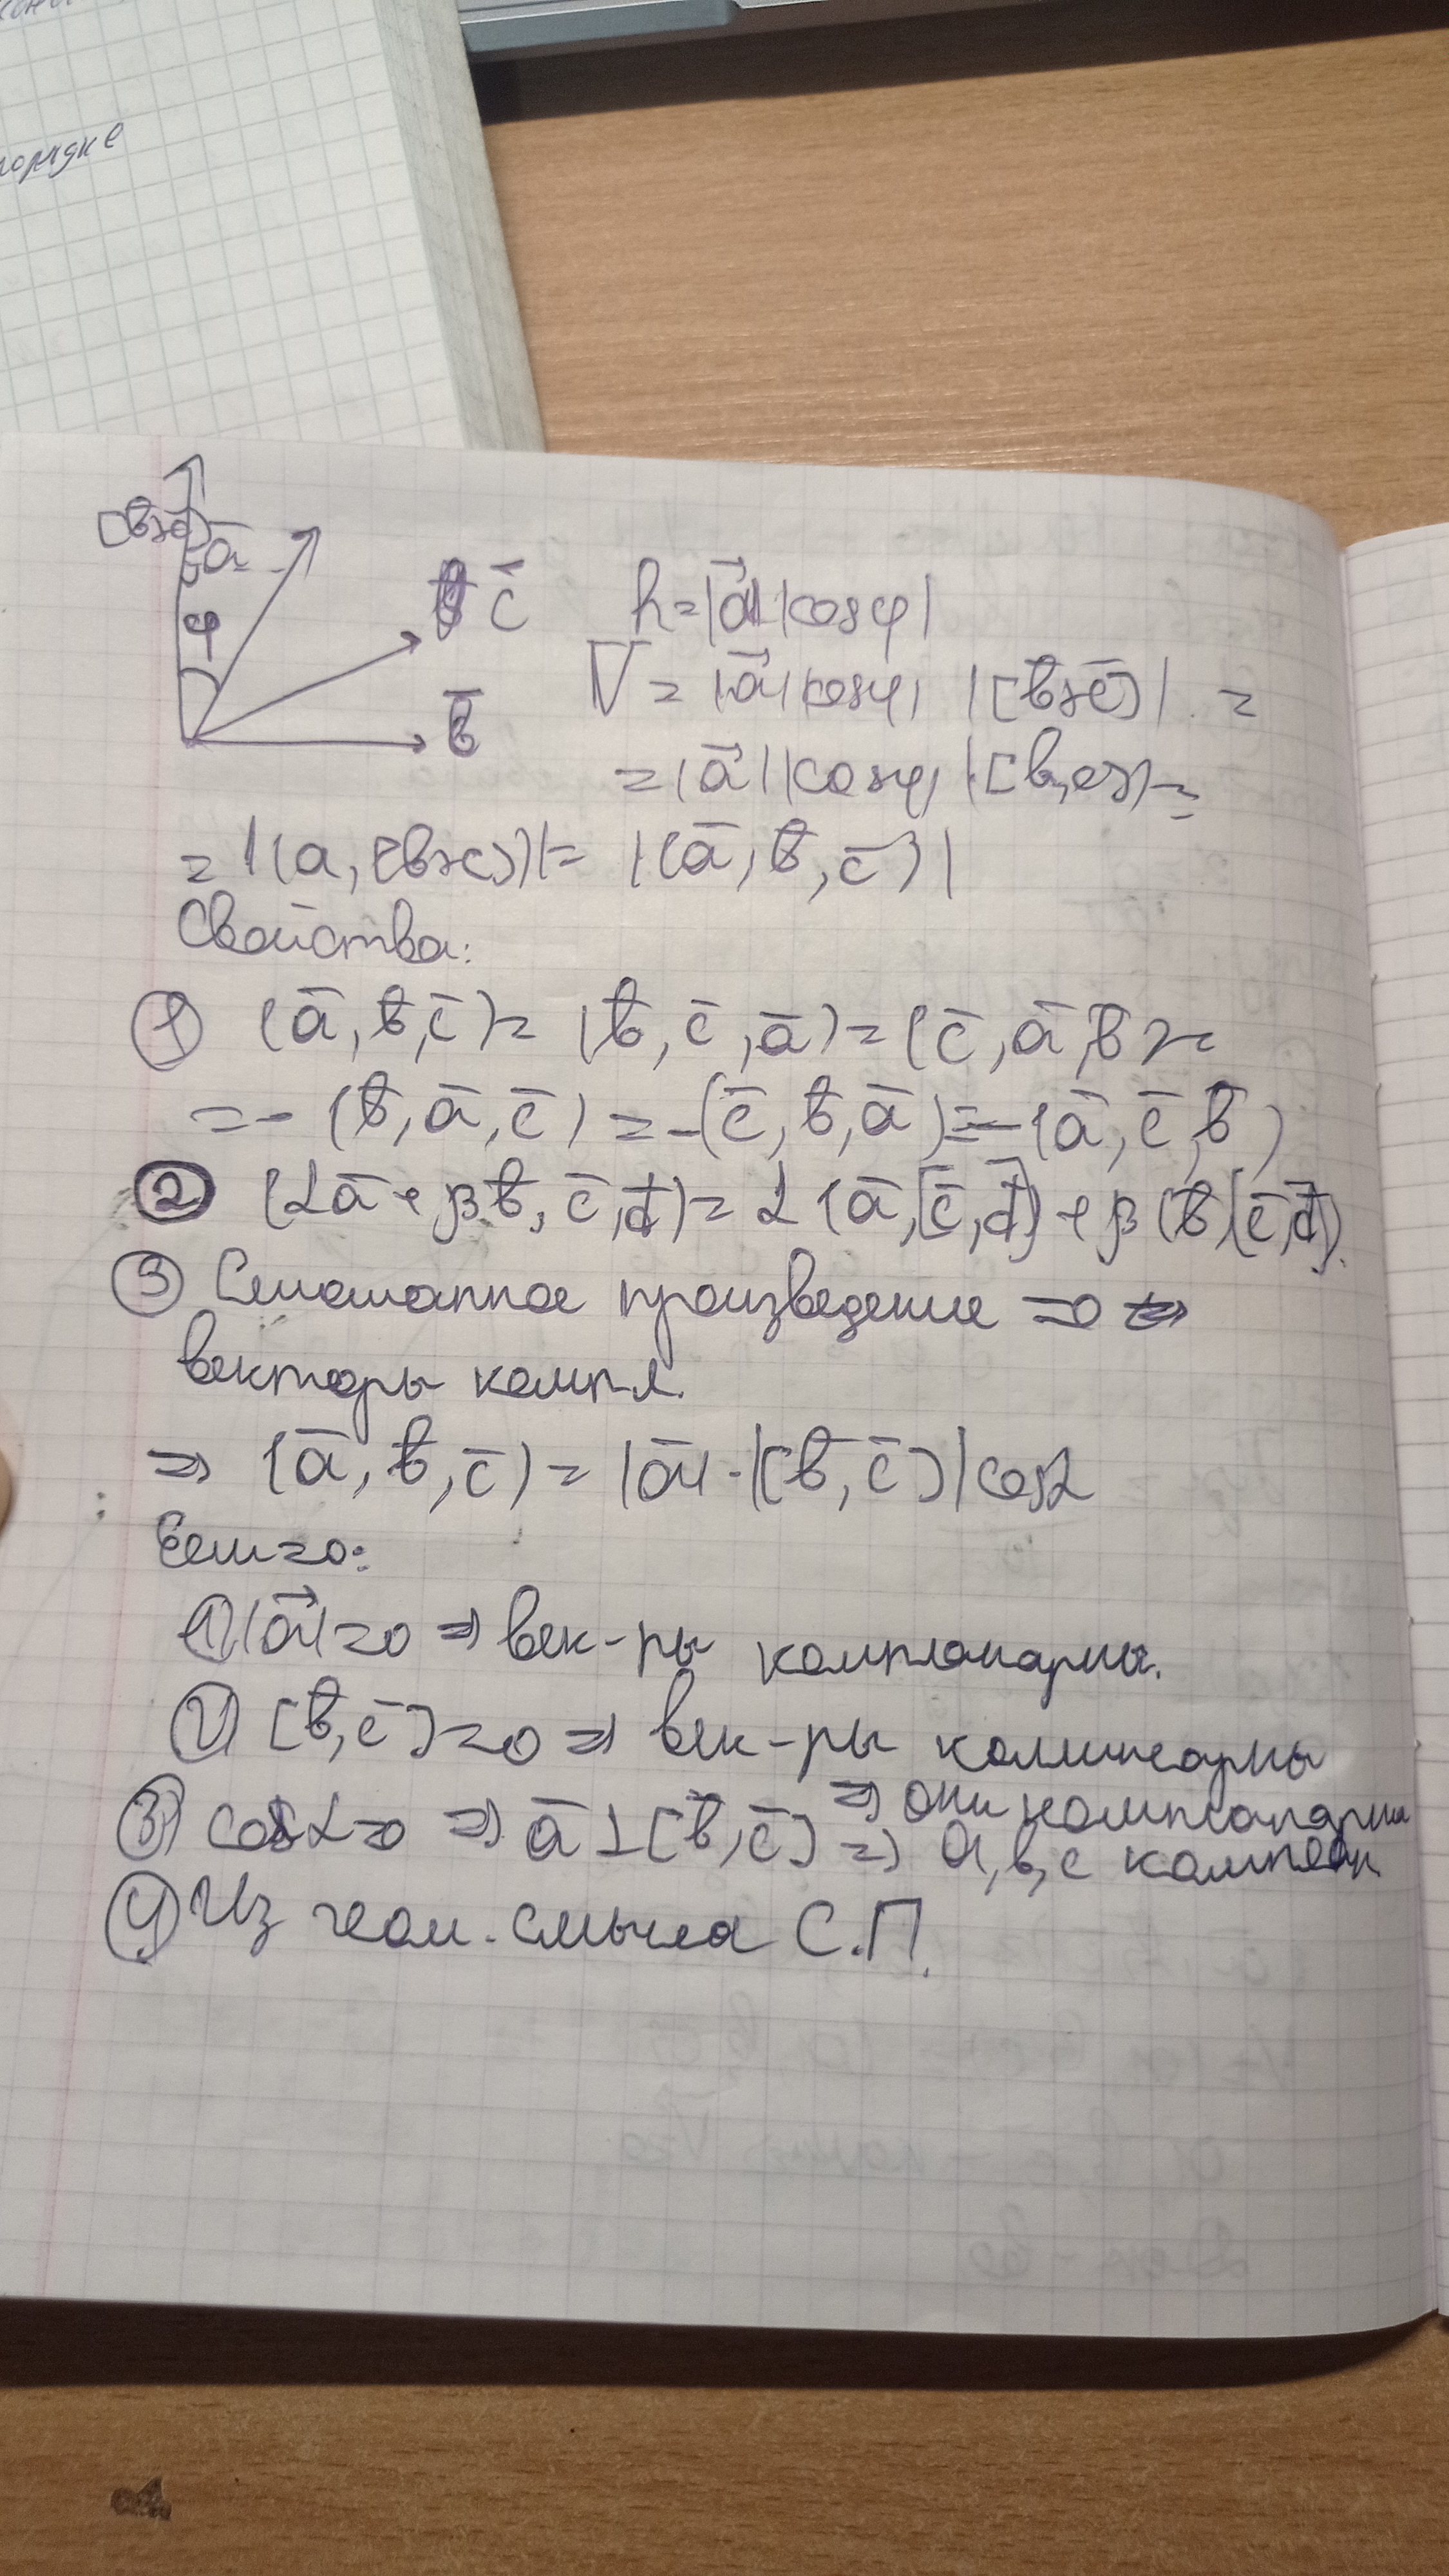 порядке
[b×c]
ā
φ
c̄
b̄
h=|a⃗||cosφ|
V = |a⃗||cosφ| |[b̄×c̄]| =
=|a⃗||cosφ| |[b,c]|=
=|(a,[b×c])|= |(ā, b̄, c̄)|
Свойства:
① (ā, b̄, c̄)= (b̄, c̄, ā)=(c̄, ā, b̄)=
=-(b̄, ā, c̄) =-(c̄, b̄, ā)=-(ā, c̄, b̄)
② (αā+βb̄, c̄, d̄)= α(ā,[c̄,d̄])+β(b̄,[c̄,d̄]).
③ Смешанное произведение =0 ⇔
векторы компл.
⇒ (ā, b̄, c̄)= |ā|·|[b̄, c̄]|cosα
Если =0:
① |a⃗|=0 ⇒ век-ры компланарны.
② [b̄, c̄]=0 ⇒ век-ры коллинеарны
⇒ они компланарны
③ cosα=0 ⇒ ā⊥[b̄, c̄] ⇒ a, b, c комплан
④ Из геом. смысла С.П.